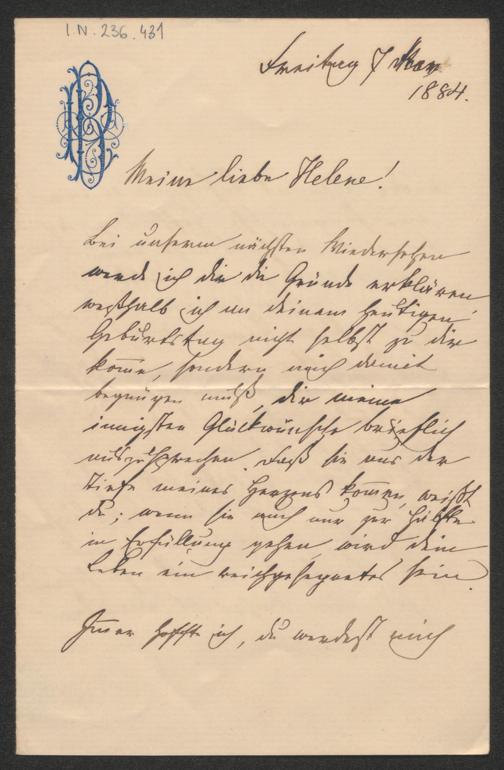 I.N. 236.431
Freitag 7 Mär
1884.
Meine liebe Helene!
Bei unserem nächsten Wiedersehen
werde ich dir die Gründe erklären
weßhalb ich an deinem heutigen
Geburtstag nicht selbst zu dir
komme, sondern mich damit
begnügen muß, dir meine
innigsten Glückwünsche brieflich
auszusprechen. Daß sie aus der
Tiefe meines Herzens kommen, weißt
du; wenn sie auch nur zur Hälfte
in Erfüllung gehen, wird dein
Leben ein reichgesegnetes sein.
Immer hoffte ich, du werdest mich